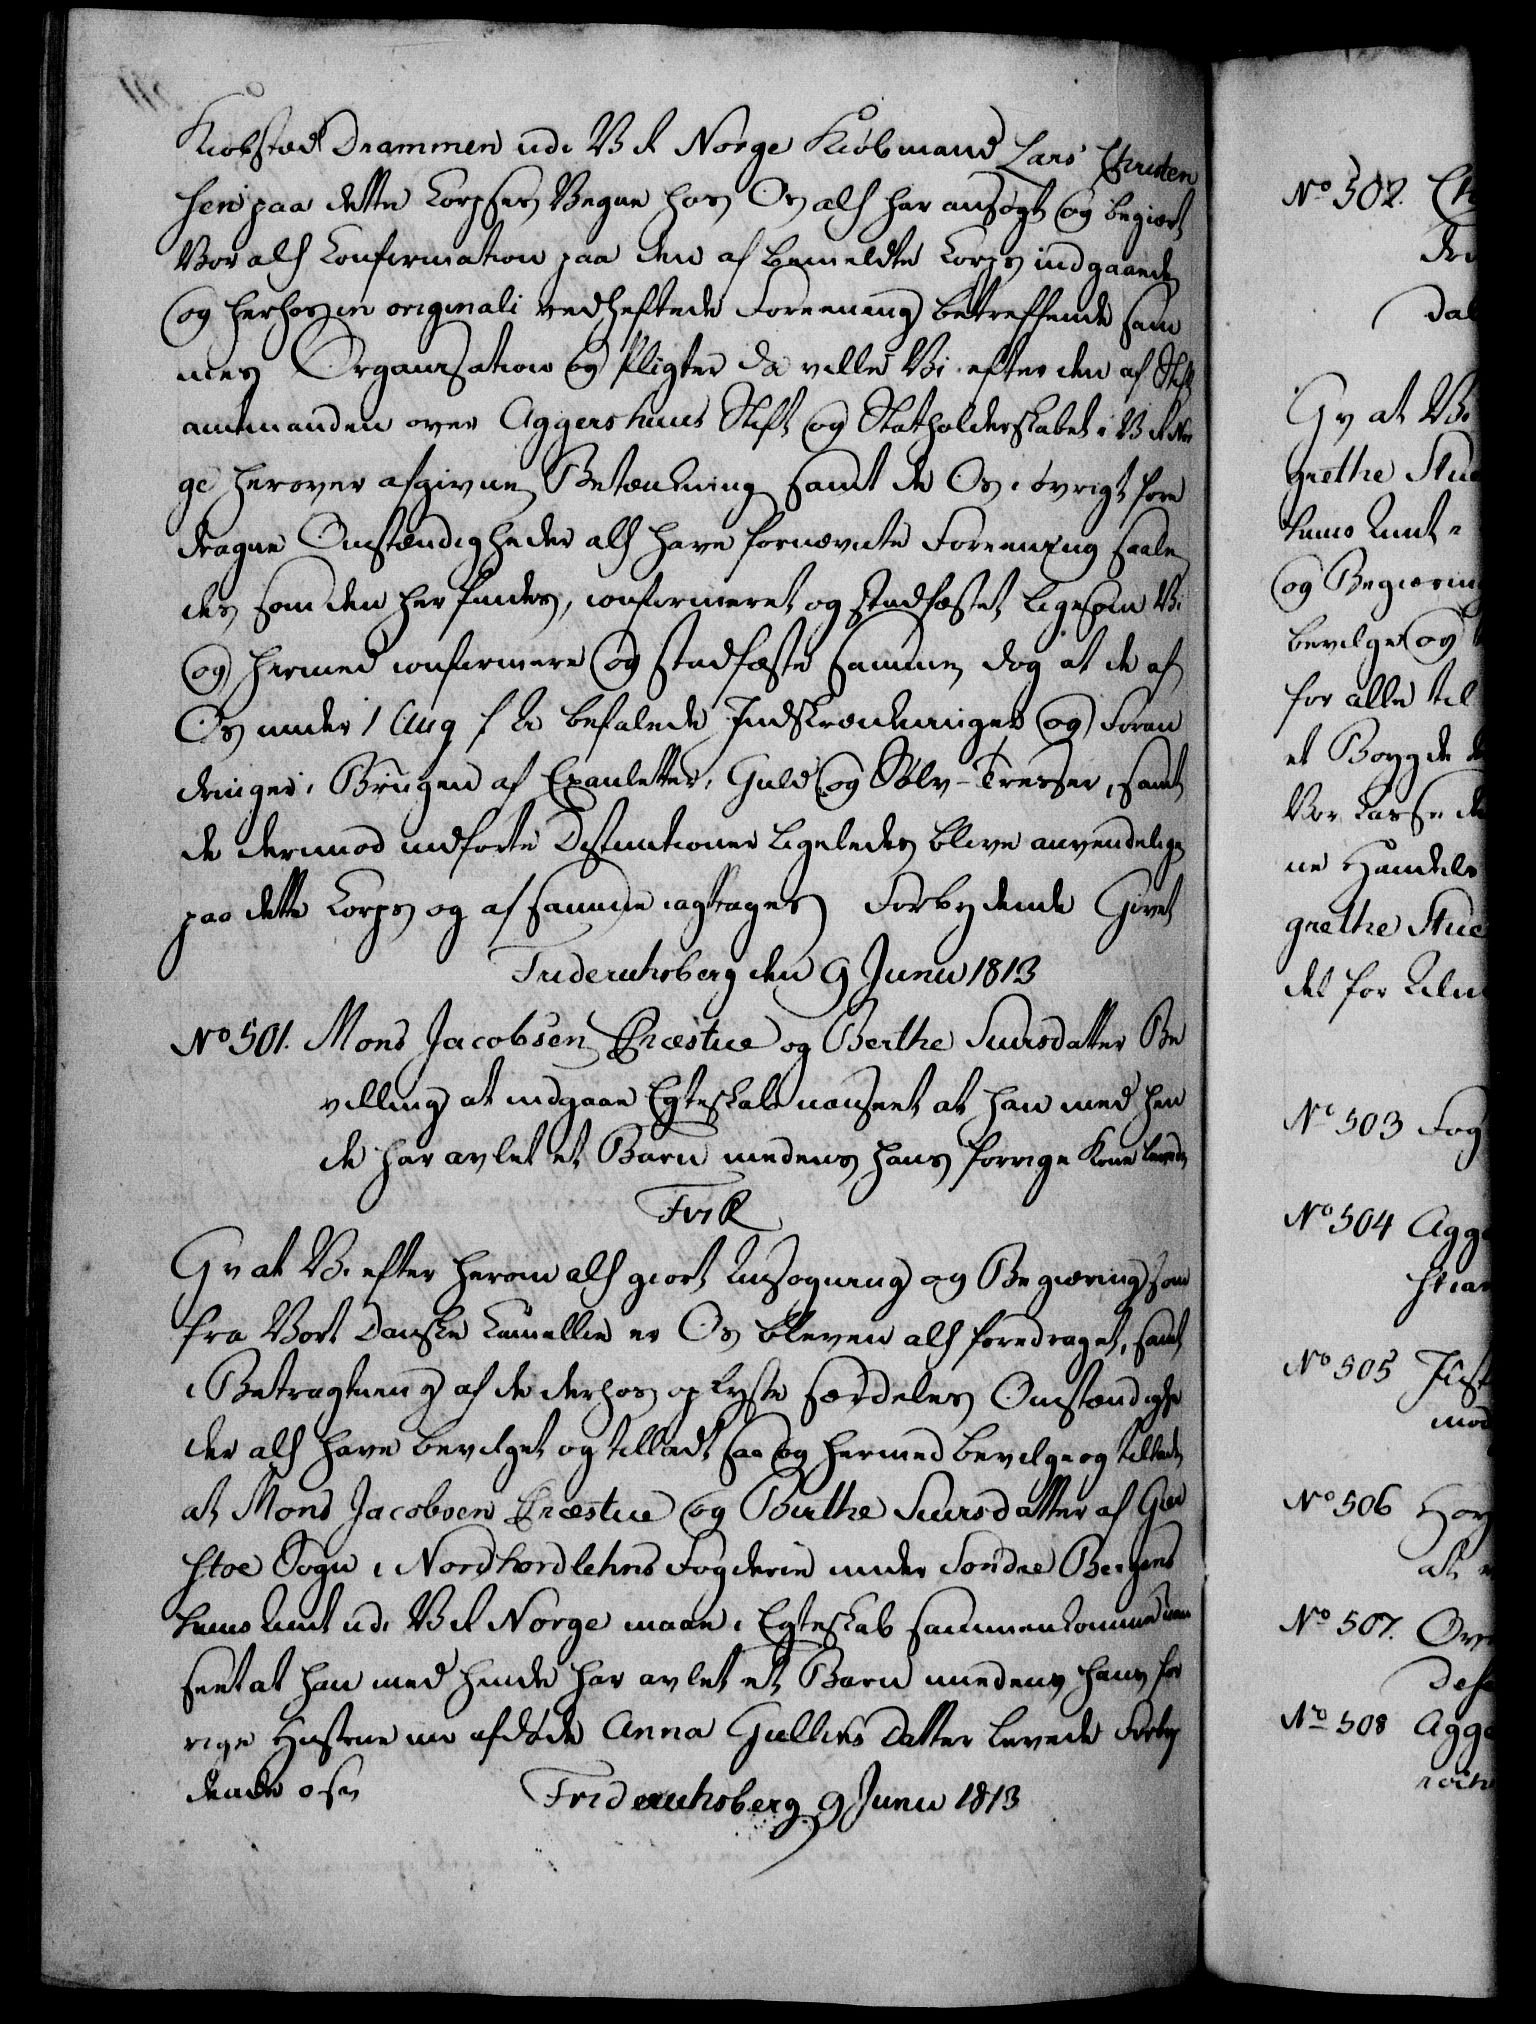 Kiøbstad Drammen udi V R Norge Kiøbmand Lars Christen
sen paa dette Corpses Vegne hos Os alh har ansøgt og begiert
Vor alh Confirmation paa den af bemeldte Corps indgaaende
og herhos in originali vedheftede Foreening betreffende sam
mes Organisation og Pligter da ville Vi efter den af Stift
amtmanden over Aggershuus Stift og Statholderskabet i V R Nor
ge herover afgivne Betænkning samt de Os i øvrigt fore
dragne Omstændigheder alh have fornævnte Foreening saale
des som den her findes, confirmeret og stadfæstet ligesom Vi
og hermed confirmere og stadfæste samme, dog at de af
Os under 1 Aug f A befalede Indskrænkninger og Foran
dringer i Brugen af Epauletter, Guld og Sølv-Tresser, samt
de derimod indførte Distinctioner ligeledes blive anvendelige
paa dette Corps og af samme iagttages Forbydende Givet
Friderichsberg den 9 Junii 1813
No 501. Mons Jacobsen Præstue og Berthe Siursdatter Be
villing at indgaae Egteskab uanseet at han med hen
de har avlet et Barn medens hans forrige Kone levede
Fr R
G v at Vi efter herom alh giort Ansøgning og Begiering som
fra Vort Danske Cancellie er Os bleven alh foredraget, samt
i Betragtning af de derhos oplyste særdeles Omstændighe
der alh have bevilget og tilladt saa og hermed bevilge og tillade
at Mons Jacobsen Præstue og Birthe Siursdatter af
stoe Sogn i Nordhordlehns Fogderie under Søndre Bergens
huus Amt udi V R Norge maae i Egteskab sammenkomme uan
seet at han med hende har avlet et Barn medens hans for
rige Hustrue nu afdøde Anna Gullicks Datter levede Forby
dende osv Friderichsberg 9 Junii 1813
No 502.
G v at Vi
grethe Stue
huus Amt i
og Begiering
bevilge og
for alle til
et Bøygde
Vor Casse
ne Handels
grethe Stue
del for
No 503 Fog
No 504 Agge
No 505 Just
No 506
No 507.
No 508 Agge